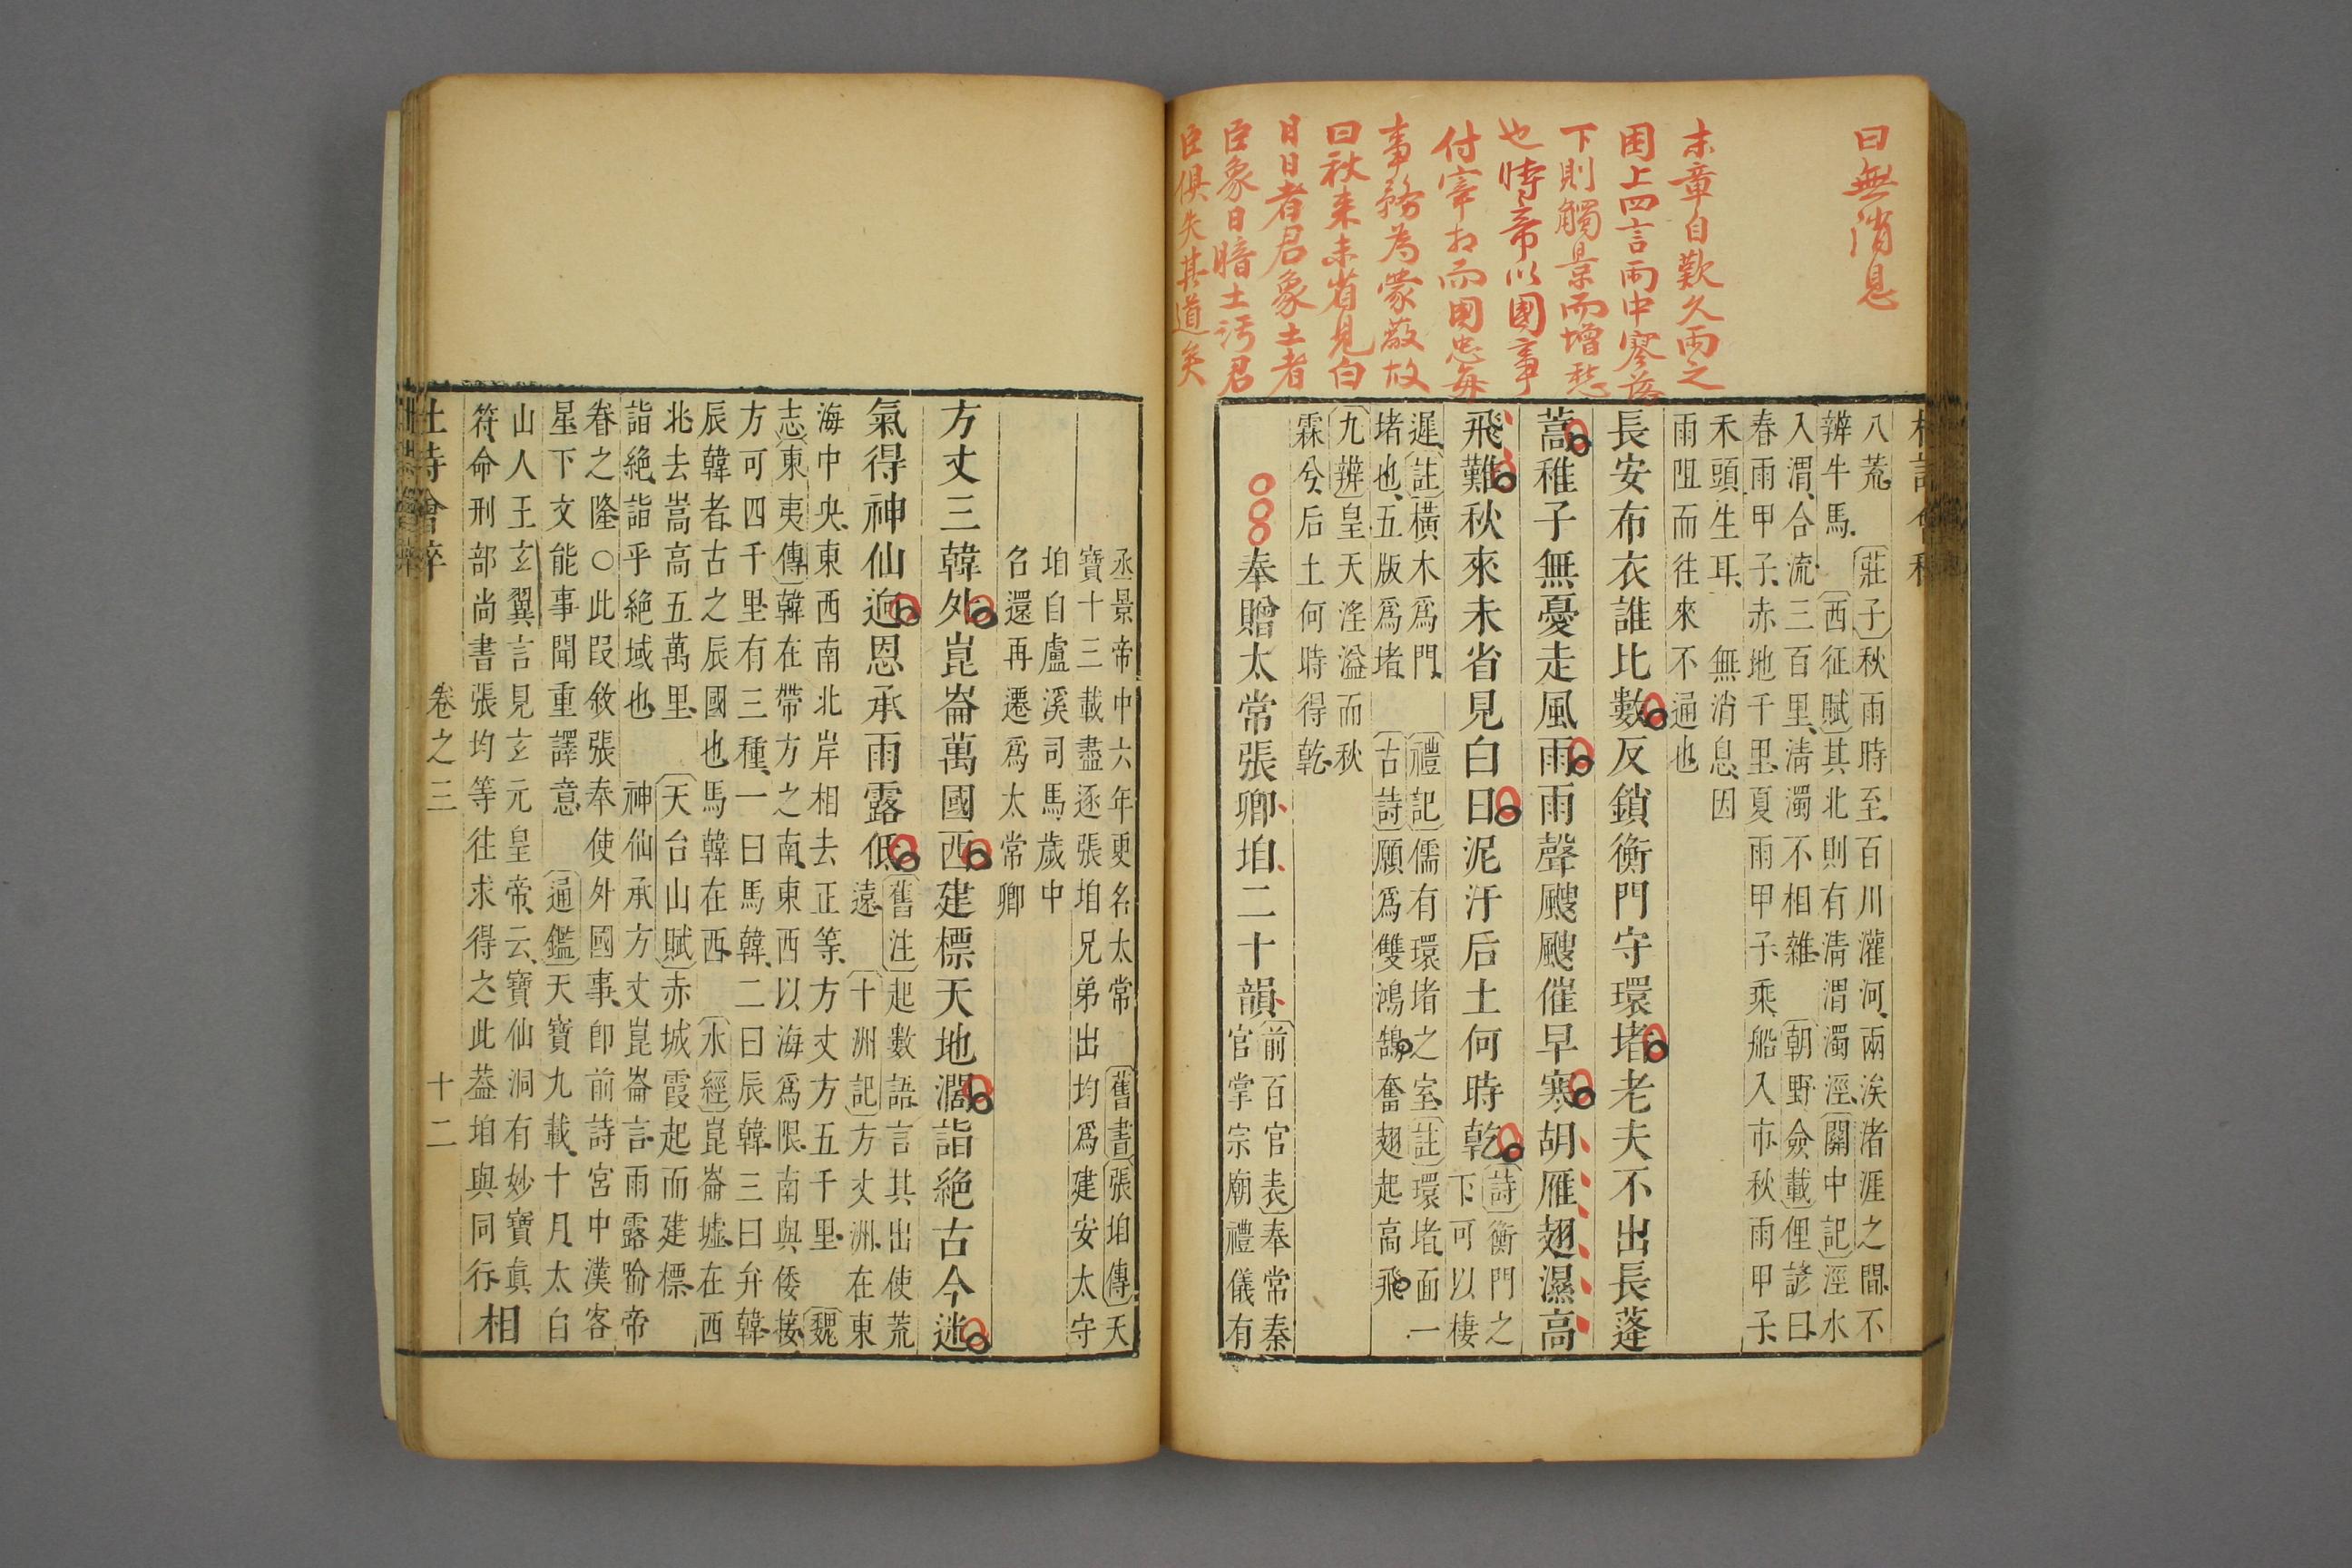 曰無消息
末章自歎久雨之
困上四言雨中寥落
下則觸景而增愁
也時帝以國事
付宰相而國忠每
事務為蒙蔽故
曰秋來未省見白
日日者君象土者
臣象日暗土污君
臣俱失其道矣
杜詩會稡
八荒　莊子秋雨時至百川灌河兩涘渚涯之間不
辨牛馬　西征賦其北則有淸渭濁涇關中記涇水
入渭合流三百里淸濁不相雜　朝野僉載俚諺曰
春雨甲子赤地千里夏雨甲子乘船入市秋雨甲子
禾頭生耳　無消息因
雨阻而往來不通也
長安布衣誰比數反鎖衡門守環堵老夫不出長蓬
蒿稚子無憂走風雨雨聲颼颼催早寒胡雁翅濕高
飛難秋來未省見白日泥汙后土何時乾
詩衡門之
下可以棲
遲註橫木爲門　禮記儒有環堵之室註環堵面一
堵也五版爲堵　古詩願爲雙鴻鵠奮翅起高飛
九辨皇天淫溢而秋
霖兮后土何時得乾
奉贈太常張卿垍二十韻
前百官表奉常秦
官掌宗廟禮儀有
丞景帝中六年更名太常　舊書張垍傳天
寶十三載盡逐張垍兄弟出均爲建安太守
垍自盧溪司馬歲中
名還再遷爲太常卿
方丈三韓外崑崙萬國西建標天地濶詣絕古今迷
氣得神仙逈恩承雨露低
舊注起數語言其出使荒
遠　十洲記方丈洲在東
海中央東西南北岸相去正等方丈方五千里　魏
志東夷傳韓在帶方之南東西以海爲限南與倭接
方可四千里有三種一曰馬韓二曰辰韓三曰弁韓
辰韓者古之辰國也馬韓在西　水經崑崙墟在西
北去嵩高五萬里　天台山賦赤城霞起而建標
詣絕詣乎絕域也　神仙承方丈崑崙言雨露喻帝
眷之隆○此叚敘張奉使外國事卽前詩宮中漢客
星下文能事聞重譯意　通鑑天寶九載十月太白
山人王玄翼言見玄元皇帝云寶仙洞有妙寶眞
符命刑部尚書張均等往求得之此葢垍與同行
相
杜詩會稡　卷之三　十二